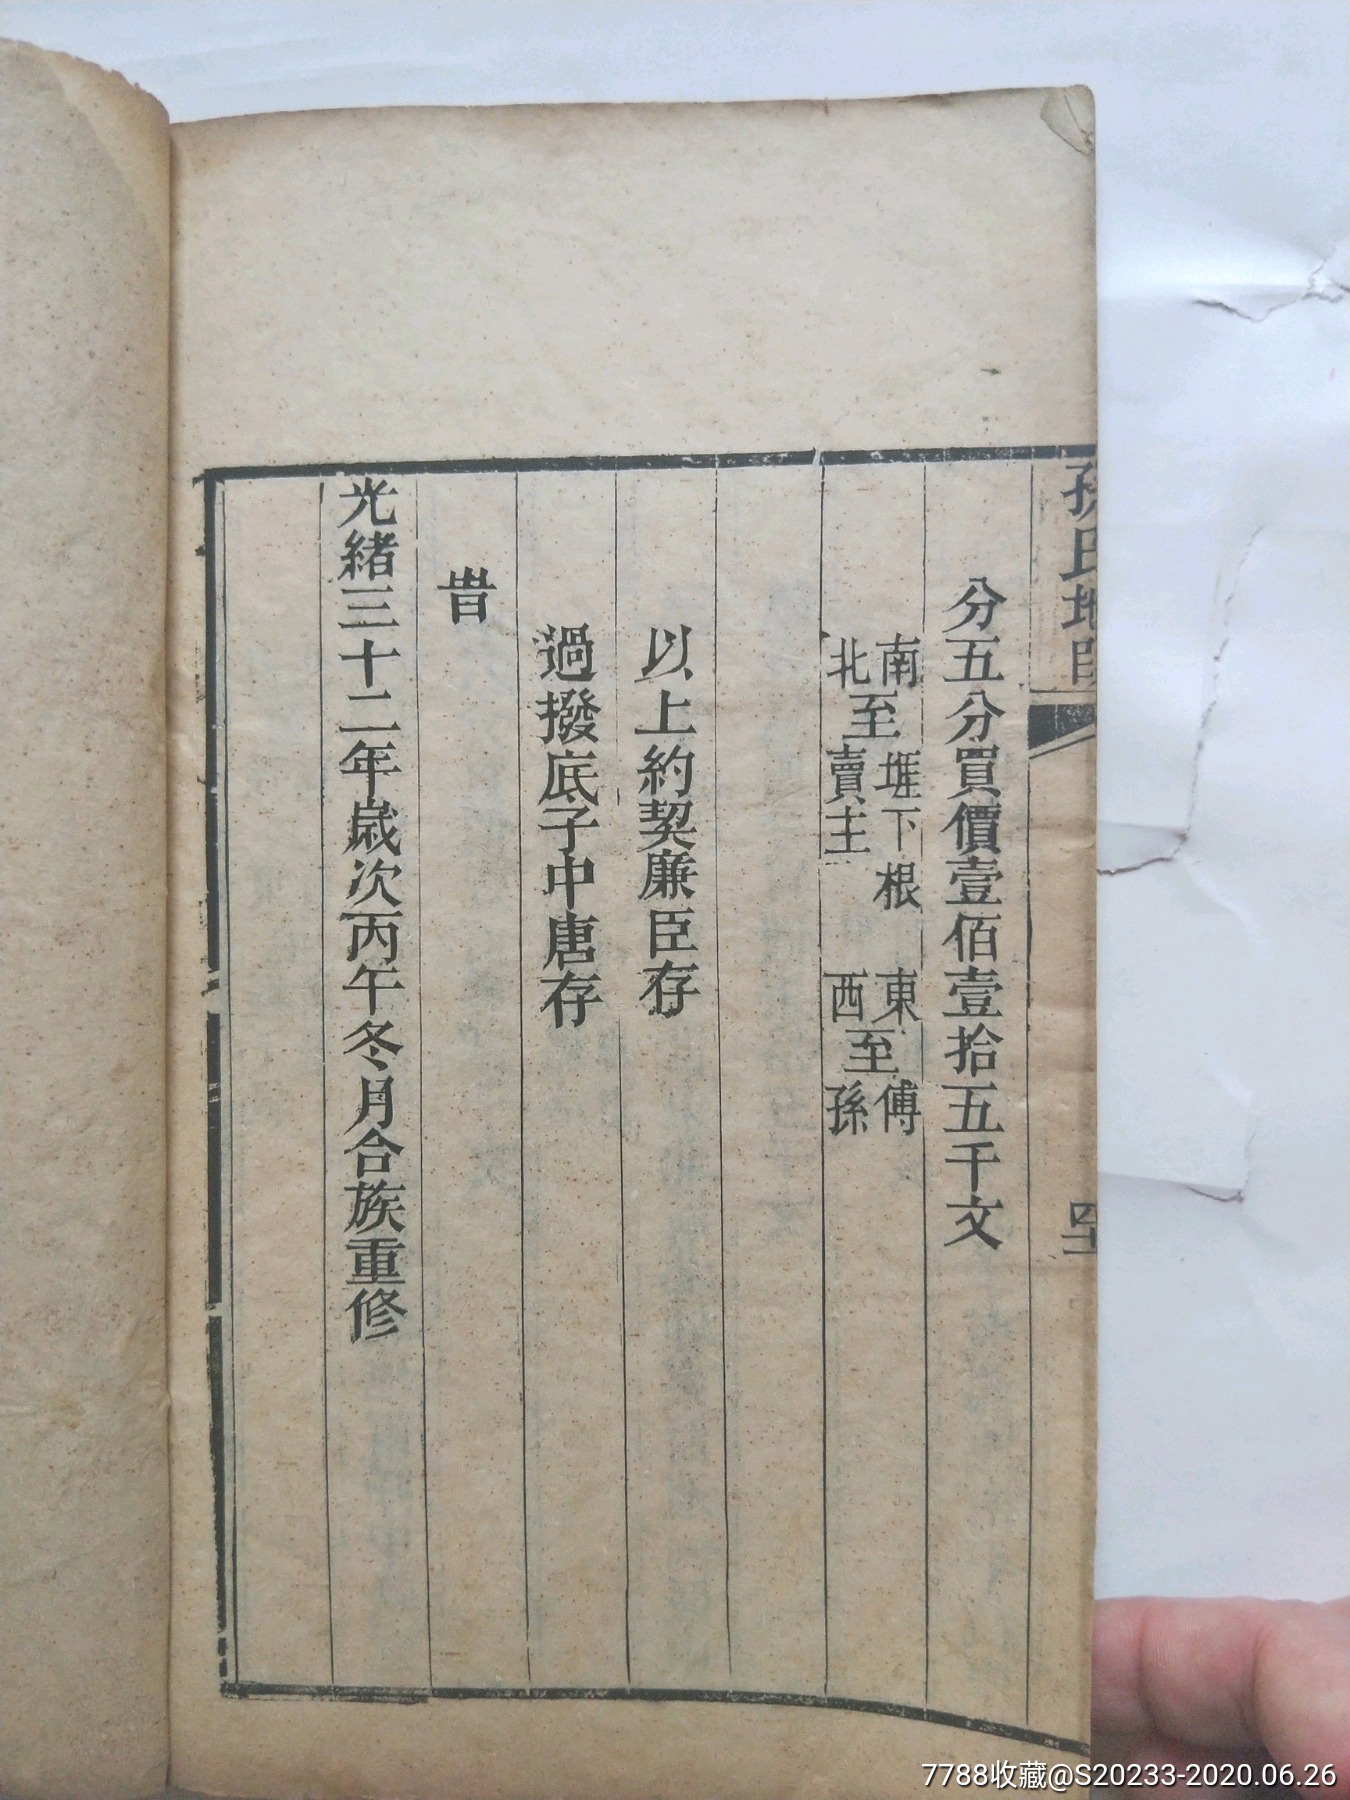 孫氏地
四
分五分買價壹佰壹拾五千文
南至堐下根 東至傅
北至賣主 西至孫
以上約契廉臣存
過撥底子中唐存
旹
光緒三十二年歲次丙午冬月合族重修
7788收藏@S20233-2020.06.26